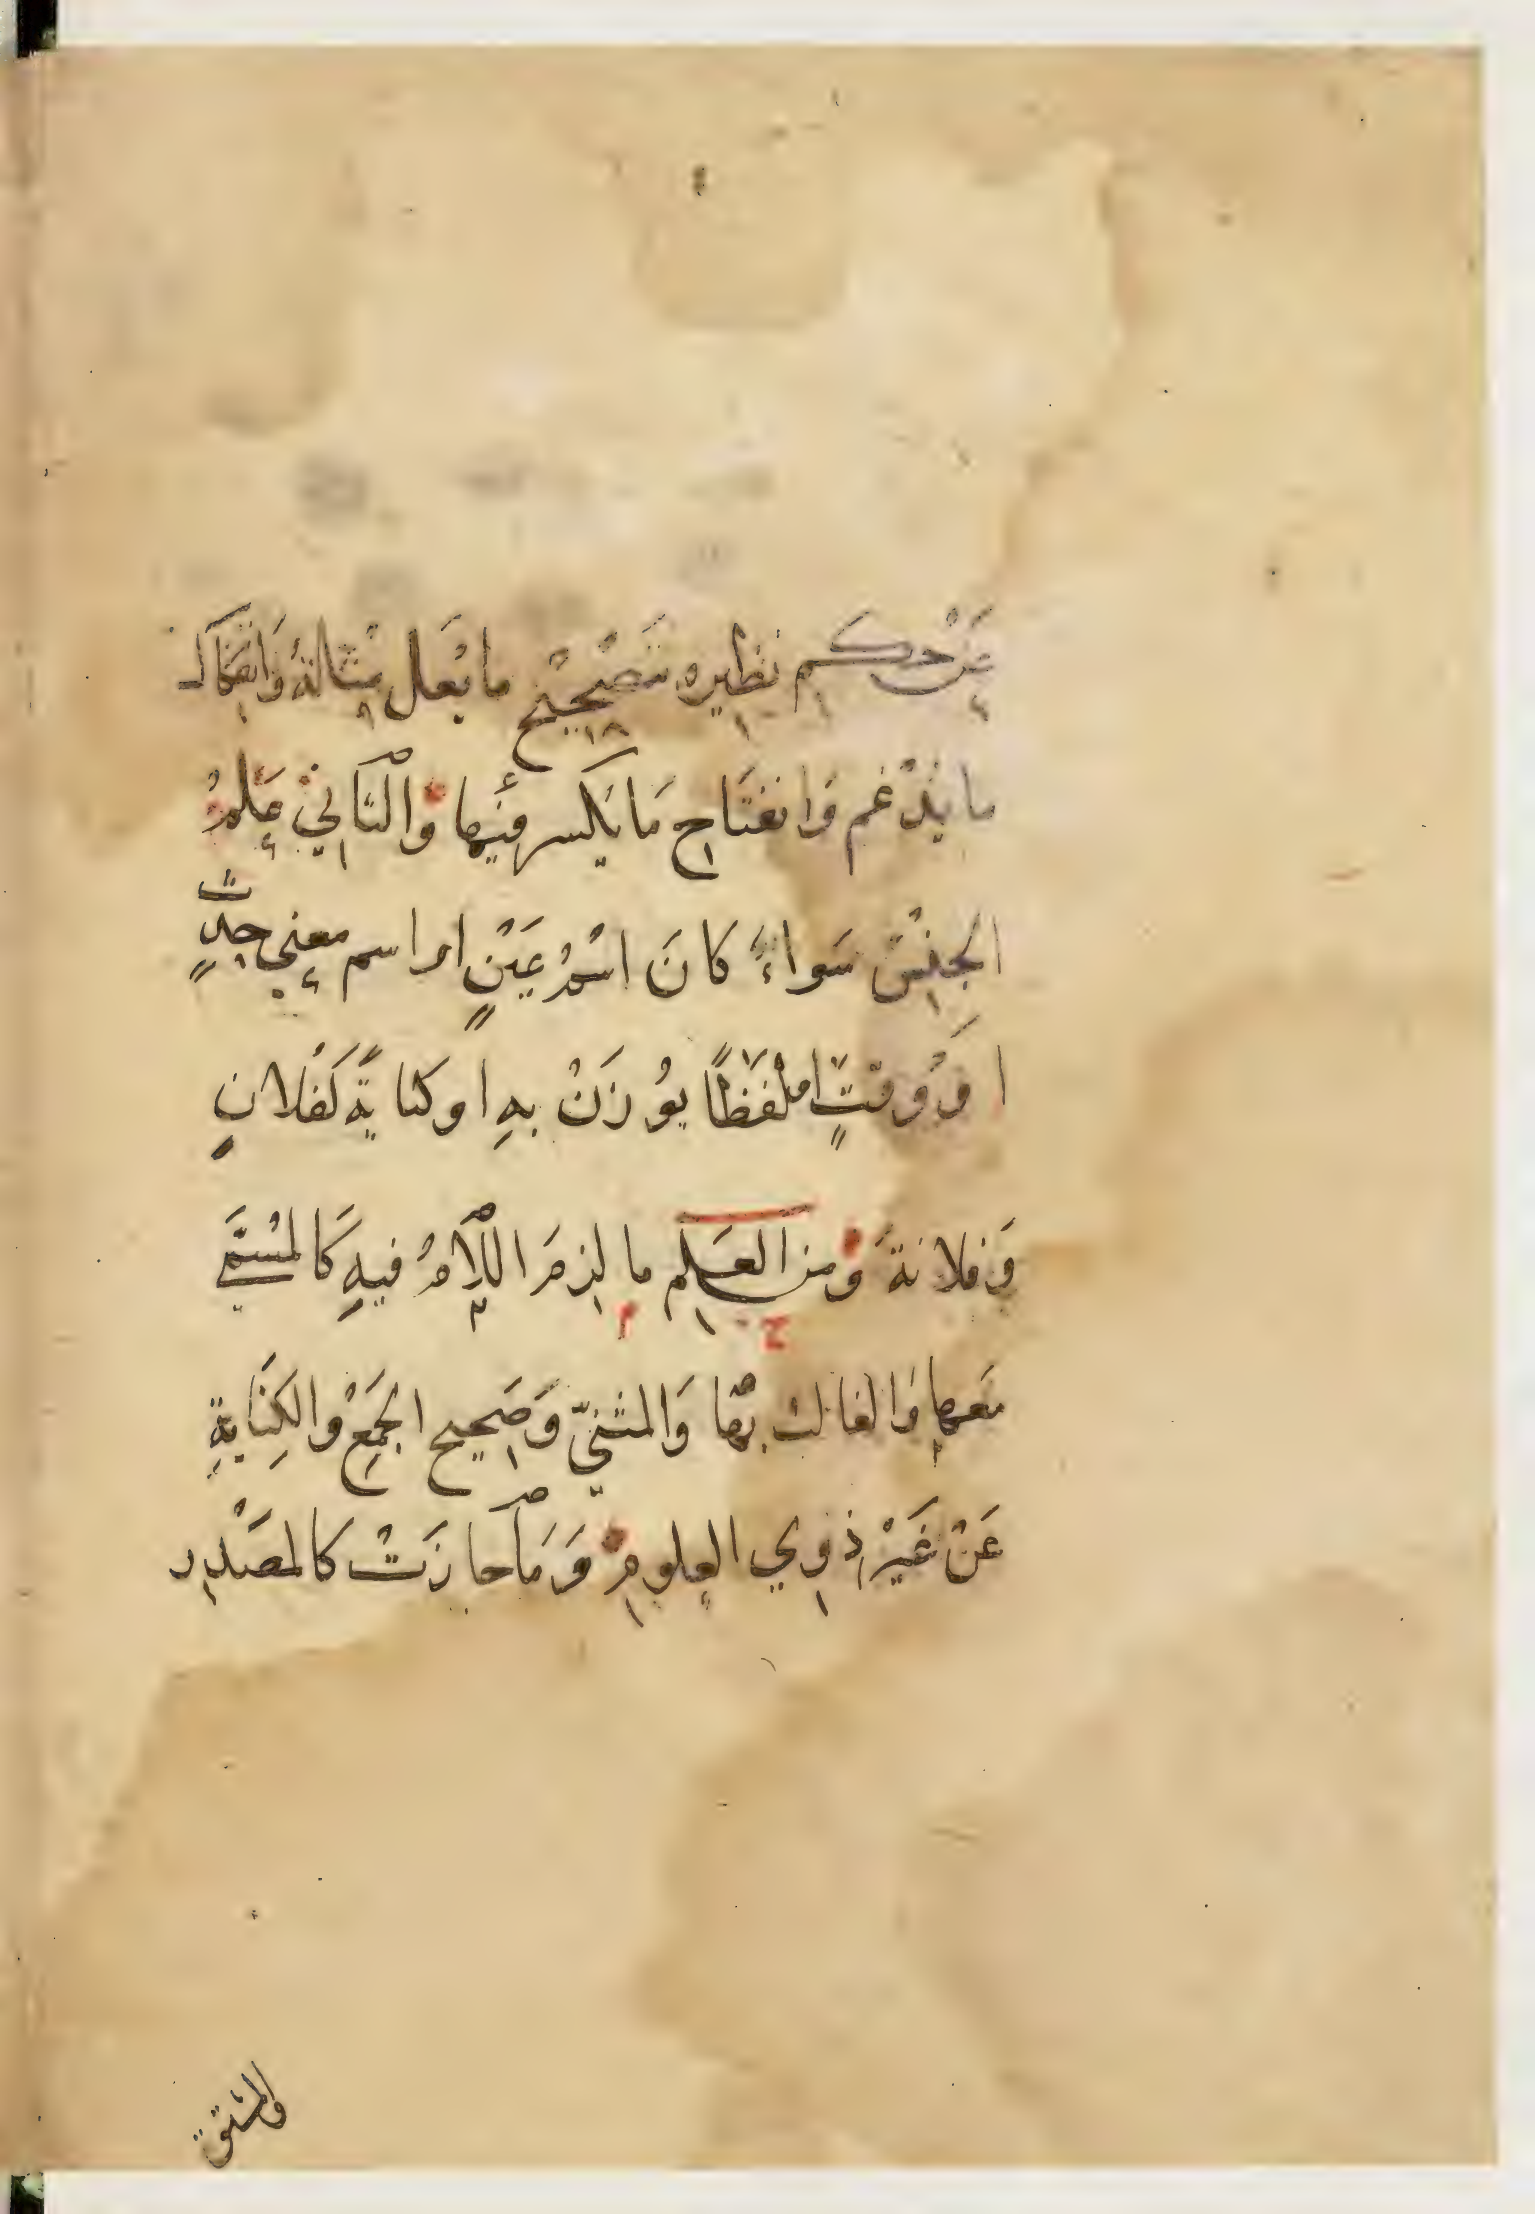 عَنْ حكم نظيره تَصْحِيْح ما يُعَل مِثَالهُ وَانفكاك
ما يُدْغم وَانفتَاح مَا يُكسر فيها وَالثاني عَلمُ
الجِنْس سَواءً كَانَ اسْمُ عَيْنٍ ام اسم معنى حدثٍ
اوَ وقتٍ ام لفظًا يُوزَنُ بهِ او كنايةً كَفُلانٍ
وَفلانةَ وَمن العَلم ما لزمَ اللّامُ فيهِ كَالمُسَمَّى
مَعها وَالغالب بهَا وَالمثنىّ وَصَحيح الجَمْع والكِنَايةِ
عَنْ غَيْر ذوي العلوم وَمَا جازَتْ كالمصْدر
والمشتق